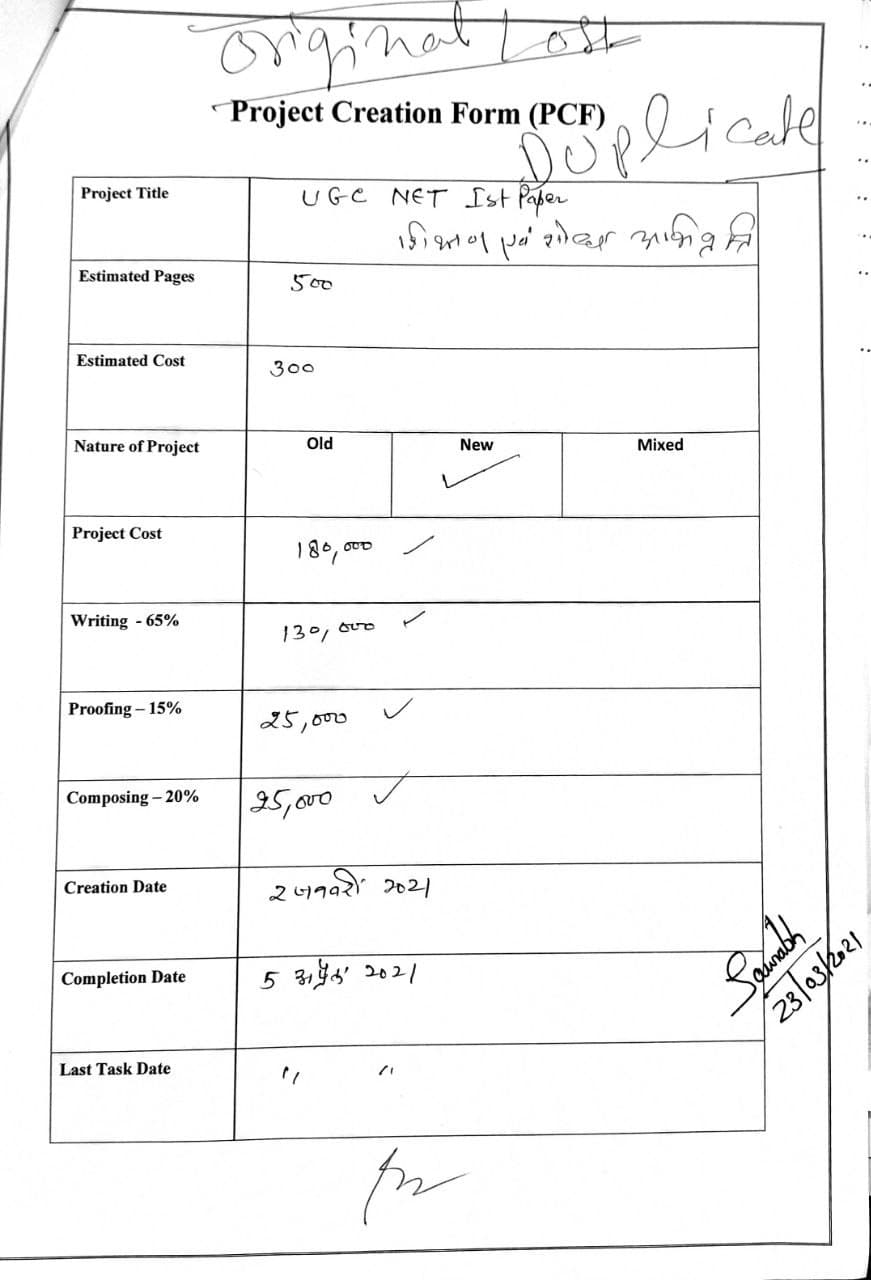 Original Lost
Project Creation Form (PCF)
Duplicate
Project Title UGC NET Ist Paper
शिक्षण एवं शोध अभिवृत्ति
Estimated Pages 500
Estimated Cost 300
Nature of Project Old New Mixed
Project Cost 180,000
Writing - 65% 130,000
Proofing – 15% 25,000
Composing – 20% 25,000
Creation Date 2 जनवरी 2021
Completion Date 5 अप्रैल 2021
Saurabh
23/03/2021
Last Task Date " "